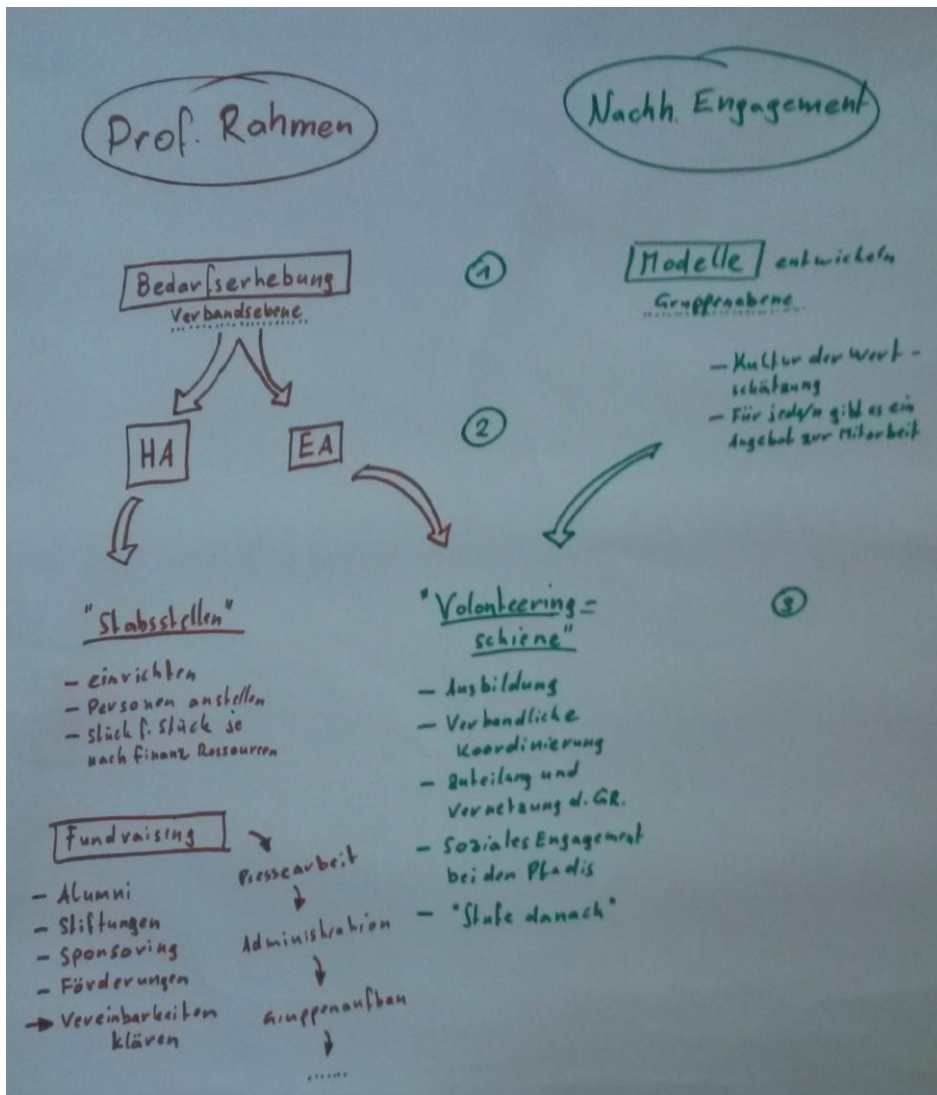 Prof. Rahmen
Nachh. Engagement
Bedarfserhebung
Verbandsebene
①
Modelle entwickeln
Gruppenebene
- Kultur der Wert-
schätzung
- Für jede/n gibt es ein
Angebot zur Mitarbeit
HA
EA
②
"Stabsstellen"
- einrichten
- Personen anstellen
- Stück f. Stück je
nach finanz Ressourcen
"Volonteering=
schiene"
- Ausbildung
- Verbandliche
Koordinierung
- Zuteilung und
Vernetzung d. GR.
- Soziales Engagement
bei den Pfadis
- "Stufe danach"
③
Fundraising
- Alumni
- Stiftungen
- Sponsoring
- Förderungen
→ Vereinbarkeiten
klären
Pressearbeit
Administration
Gruppenaufbau
......